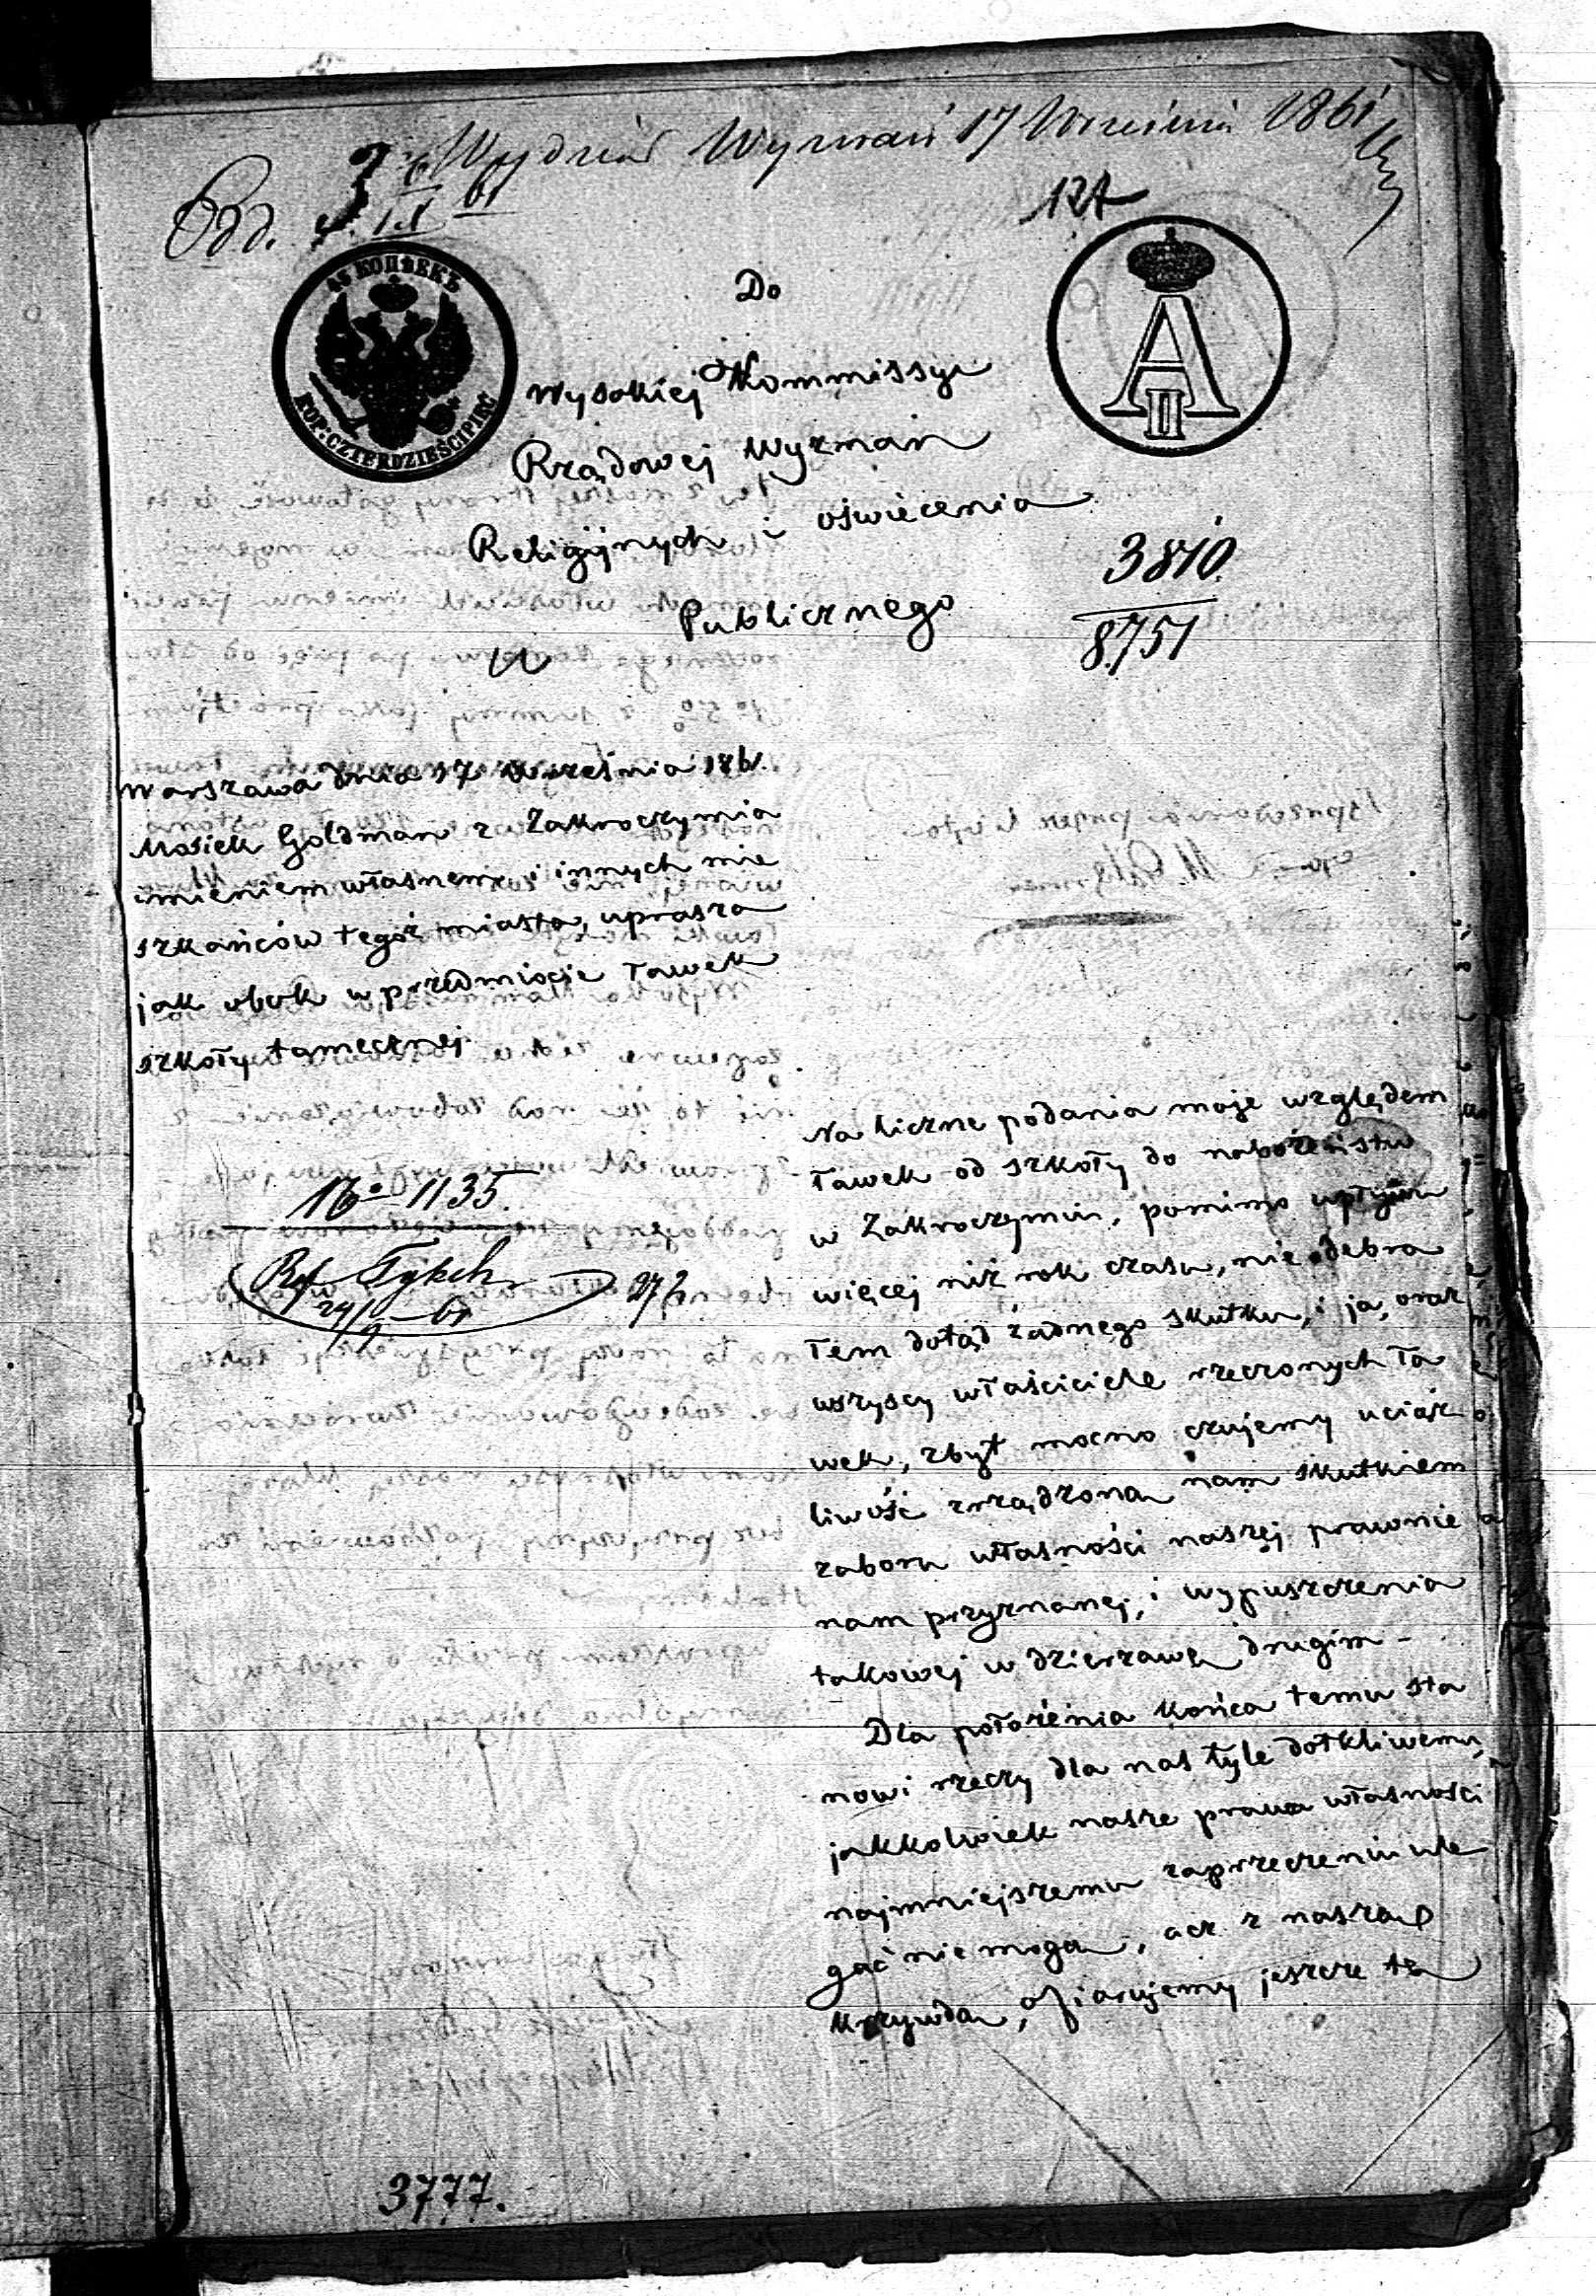 Wydział Wyznań 17 Września 1861
Odd. 3
127
45 КОПѢЕКЪ
KOP: CZTERDZIEŚCI PIĘĆ
A II
Do
Wysokiej Kommissyi
Rządowej Wyznań
Religijnych i oświecenia
Publicznego
W
3810
8751
Warszawa dnia 17 Września 1861.
Mosiek Goldman z Zakroczymia
imieniem własnem i innych mie
szkańców tegoż miasta, uprasza
jak obok w przedmiocie ławek
szkoły tamecznej
16 - 1135.
Ref
24/9 - 61
Na liczne podania moje względem
ławek od szkoły do nabożeństw
w Zakroczymiu, pomimo upływu
więcej niż rok czasu, nie odebra
łem dotąd żadnego skutku, i ja, oraz
wszyscy właściciele rzeczonych ła
wek, zbyt mocno czujemy uciąż
liwość zrządzoną nam skutkiem
zaboru własności naszej prawnie
nam przyznanej, i wypuszczenia
takowej w dzierżawę drugim -
Dla położenia końca temu sta
nowi rzeczy dla nas tyle dotkliwemu,
jakkolwiek nasze prawa własności
najmniejszemu zaprzeczeniu ule
gać nie mogą, acz z naszą
krzywdą, ofiarujemy jeszcze tę
3777.